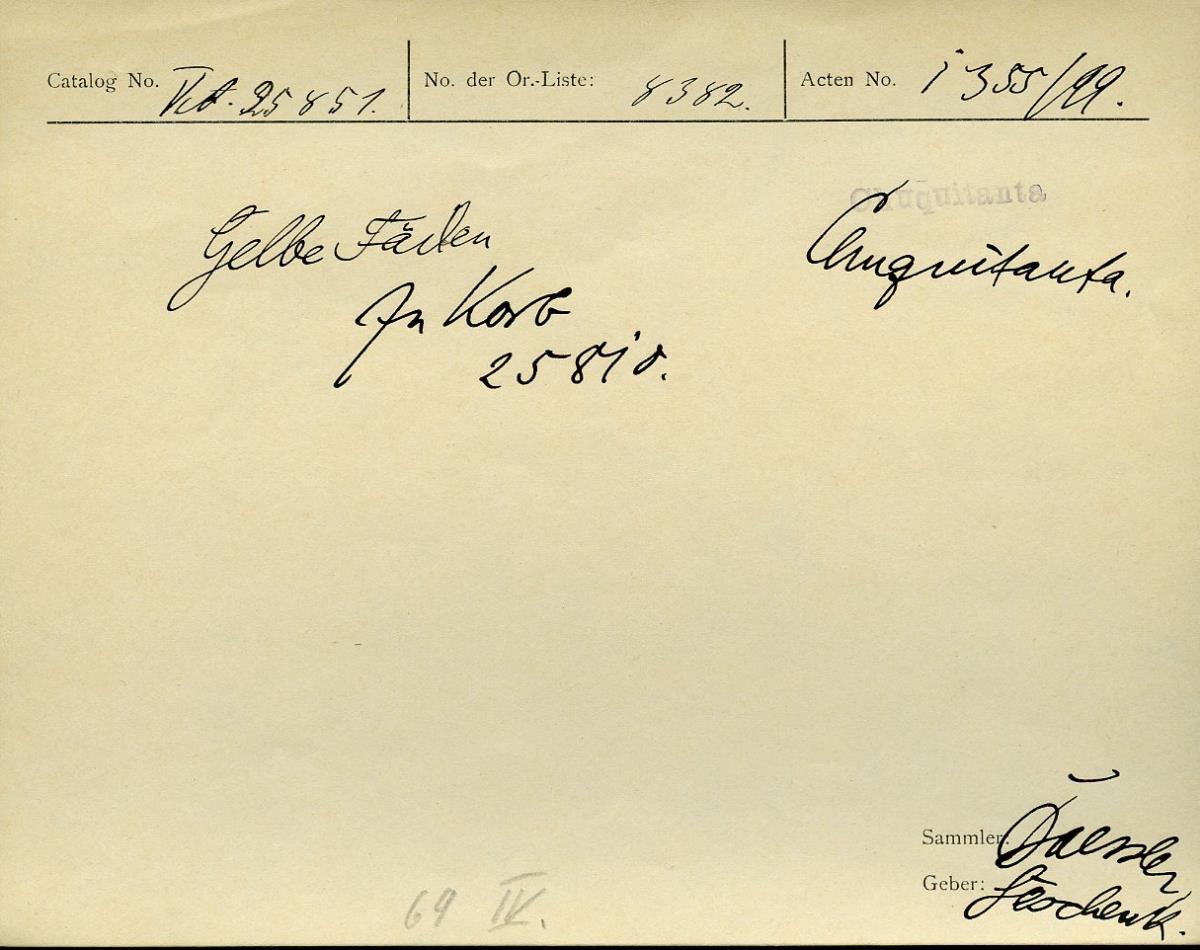 Catalog No. VA. 25851. No. der Or.-Liste: 8382. Acten No. 1355/99.
Chuquitanta
Gelbe Fäden
Chuquitanta.
In Korb
25810.
Sammler:
Geber: Geschenk.
69 IV.